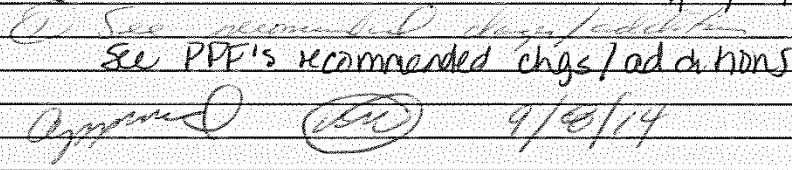 ① See recommended chgs/additions
See PPF's recommended chgs/additions
Approved 9/8/14